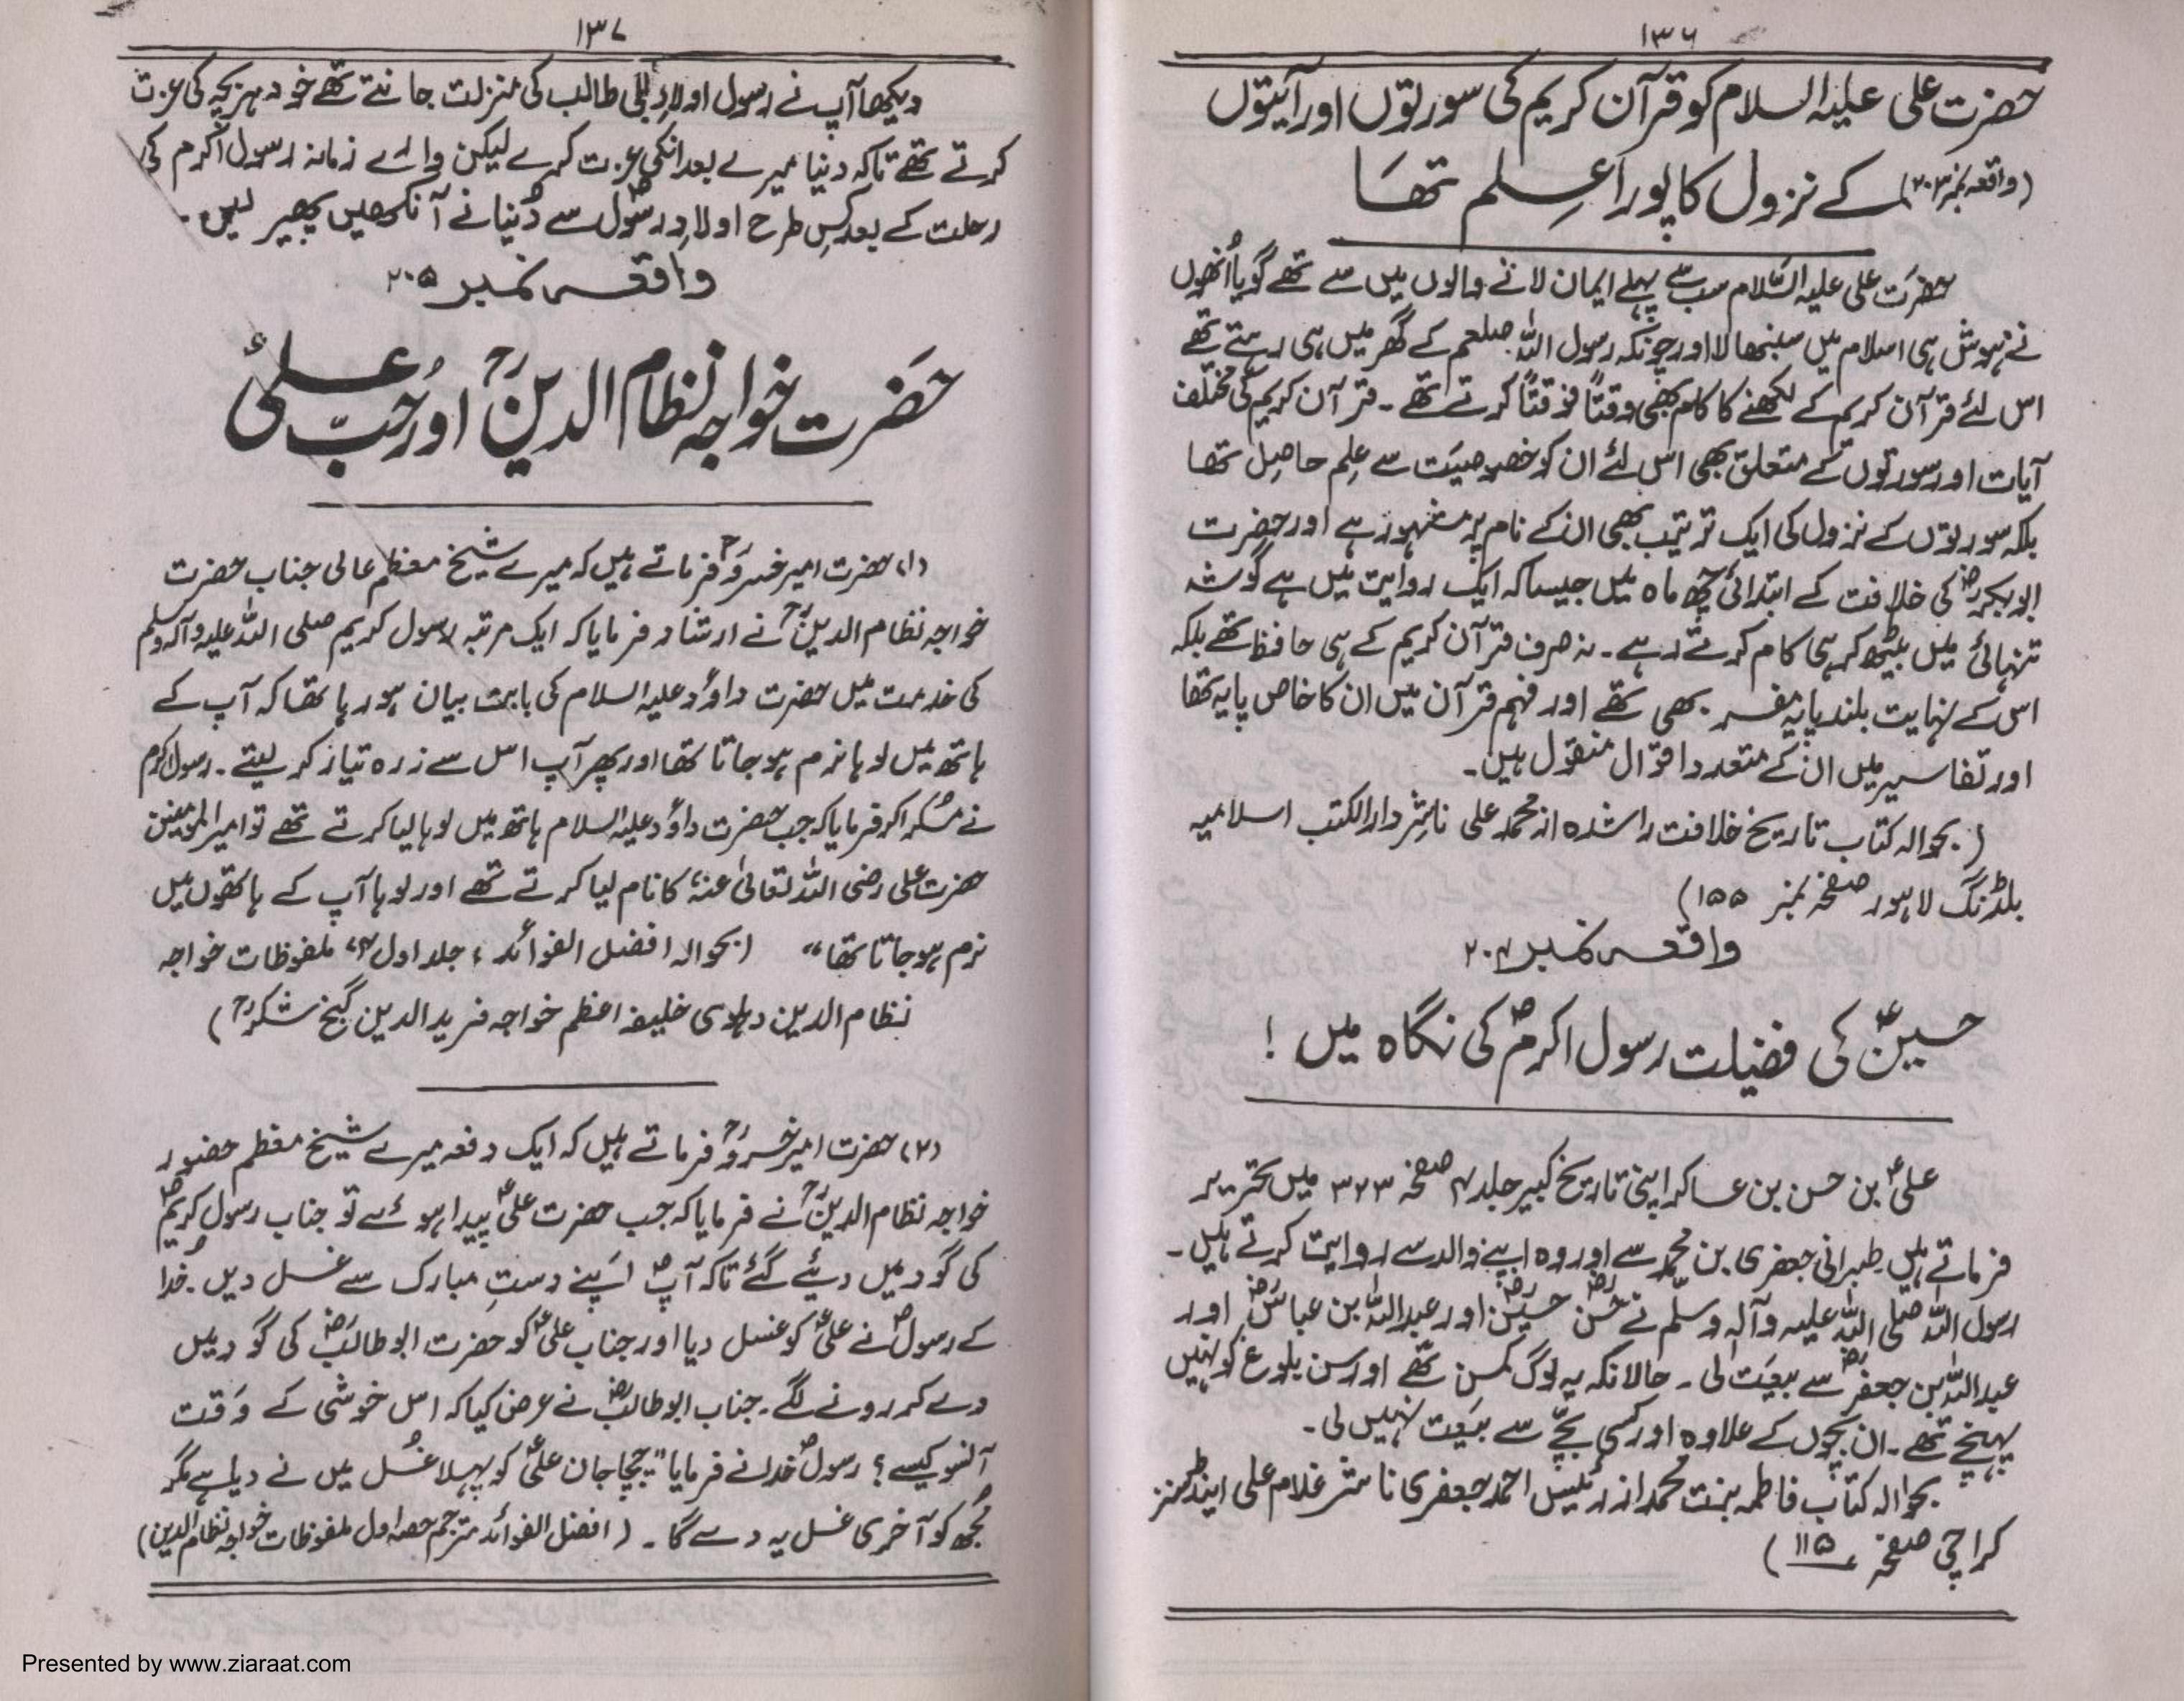 ۱۳۶
حضرت علی علیہ السلام کو قرآن کریم کی سورتوں اور آیتوں
(واقعہ نمبر ۲۰۳) کے نزول کا پورا عِلم تھا
حضرت علی علیہ السّلام سب سے پہلے ایمان لانے والوں میں سے تھے گویا اُنھوں
نے ہوش ہی اسلام میں سنبھالا اور چونکہ رسول اللہ صلعم کے گھر میں ہی رہتے تھے
اس لئے قرآن کریم کے لکھنے کا کام بھی وقتاً فوقتاً کرتے تھے۔ قرآن کریم کی مختلف
آیات اور سورتوں کے متعلق بھی اس لئے ان کو خصوصیت سے عِلم حاصِل تھا
بلکہ سورتوں کے نزول کی ایک ترتیب بھی ان کے نام پر مشہور ہے اور حضرت
ابوبکرؓ کی خلافت کے ابتدائی چھ ماہ میں جیسا کہ ایک روایت میں ہے گوشہ
تنہائی میں بیٹھ کر ہی کام کرتے رہے۔ نہ صرف قرآن کریم کے ہی حافظ تھے بلکہ
اس کے نہایت بلند پایہ مفسر بھی تھے اور فہم قرآن میں ان کا خاص پایہ تھا
اور تفاسیر میں ان کے متعدد اقوال منقول ہیں۔
(بحوالہ کتاب تاریخ خلافت راشدہ از محمد علی ناشر دارالکتب اسلامیہ
بلڈنگ لاہور صفحہ نمبر ۱۵۵)
واقعہ نمبر ۲۰۴
حسینؑ کی فضیلت رسول اکرمؐ کی نگاہ میں !
علیؑ بن حسن بن عساکر اپنی تاریخ کبیر جلد ۴ صفحہ ۳۷۳ میں تحریر
فرماتے ہیں۔ طبرانی جعفری بن محمّد سے اور وہ اپنے والد سے روایت کرتے ہیں۔
رسول اللہ صلی اللہ علیہ وآلہ وسلم نے حسنؓ حسینؓ اور عبداللہ بن عباسؓ اور
عبداللہ بن جعفرؓ سے بیعت لی۔ حالانکہ یہ لوگ کمسن تھے اور سن بلوغ کو نہیں
پہنچے تھے۔ ان بچوں کے علاوہ اور کسی بچّے سے بیعت نہیں لی۔
بحوالہ کتاب فاطمہ بنت محمد از رئیس احمد جعفری ناشر غلام علی اینڈ سنز
کراچی صفحہ ۱۱۵)
۱۳۷
دیکھا آپ نے رسول اولادِ ابی طالب کی منزلت جانتے تھے خود ہر بچہ کی عزت
کرتے تھے تاکہ دنیا میرے بعد انکی عزت کرے لیکن وائے زمانہ رسول اکرم کی
رحلت کے بعد کِس طرح اولادِ رسولؐ سے دُنیا نے آنکھیں پھیر لیں۔
واقعہ نمبر ۲۰۵
حَضرت خواجہ نظام الدینؒ اور حُبّ علیؑ
(۱) حضرت امیر خسروؒ فرماتے ہیں کہ میرے شیخ معظم عالی جناب حضرت
خواجہ نظام الدینؒ نے ارشاد فرمایا کہ ایک مرتبہ رسول کریم صلی اللہ علیہ وآلہ وسلم
کی خدمت میں حضرت داؤد علیہ السلام کی بابت بیان ہو رہا تھا کہ آپ کے
ہاتھ میں لوہا نرم ہو جاتا تھا اور پھر آپ اس سے زرہ تیار کر لیتے۔ رسول اکرم
نے مُسکرا کر فرمایا کہ جب حضرت داؤد علیہ السلام ہاتھ میں لوہا لیا کرتے تھے تو امیر المومنین
حضرت علی رضی اللہ تعالیٰ عنہ، کا نام لیا کرتے تھے اور لوہا آپ کے ہاتھوں میں
نرم ہو جاتا تھا“ (بحوالہ افضل الفوائد، جلد اول ملفوظات خواجہ
نظام الدین دہلوی خلیفہ اعظم خواجہ فرید الدین گنج شکرؒ)
(۲) حضرت امیر خسروؒ فرماتے ہیں کہ ایک دفعہ میرے شیخ معظم حضور
خواجہ نظام الدینؒ نے فرمایا کہ جب حضرت علیؑ پیدا ہوئے تو جناب رسول کریمؐ
کی گود میں دیئے گئے تاکہ آپؐ اپنے دستِ مبارک سے غسل دیں۔ خدا
کے رسولؐ نے علیؑ کو غسل دیا اور جناب علیؑ کو حضرت ابو طالبؓ کی گود میں
دے کر رونے لگے۔ جناب ابو طالبؓ نے عرض کیا کہ اس خوشی کے وقت
آنسو کیسے؟ رسولؐ خدا نے فرمایا ”چچا جان علیؑ کو پہلا غُسل میں نے دیا ہے مگر
مُجھ کو آخری غسل یہ دے گا۔ (افضل الفوائد مترجم حصہ اول ملفوظات خواجہ نظام الدین)
Presented by www.ziaraat.com